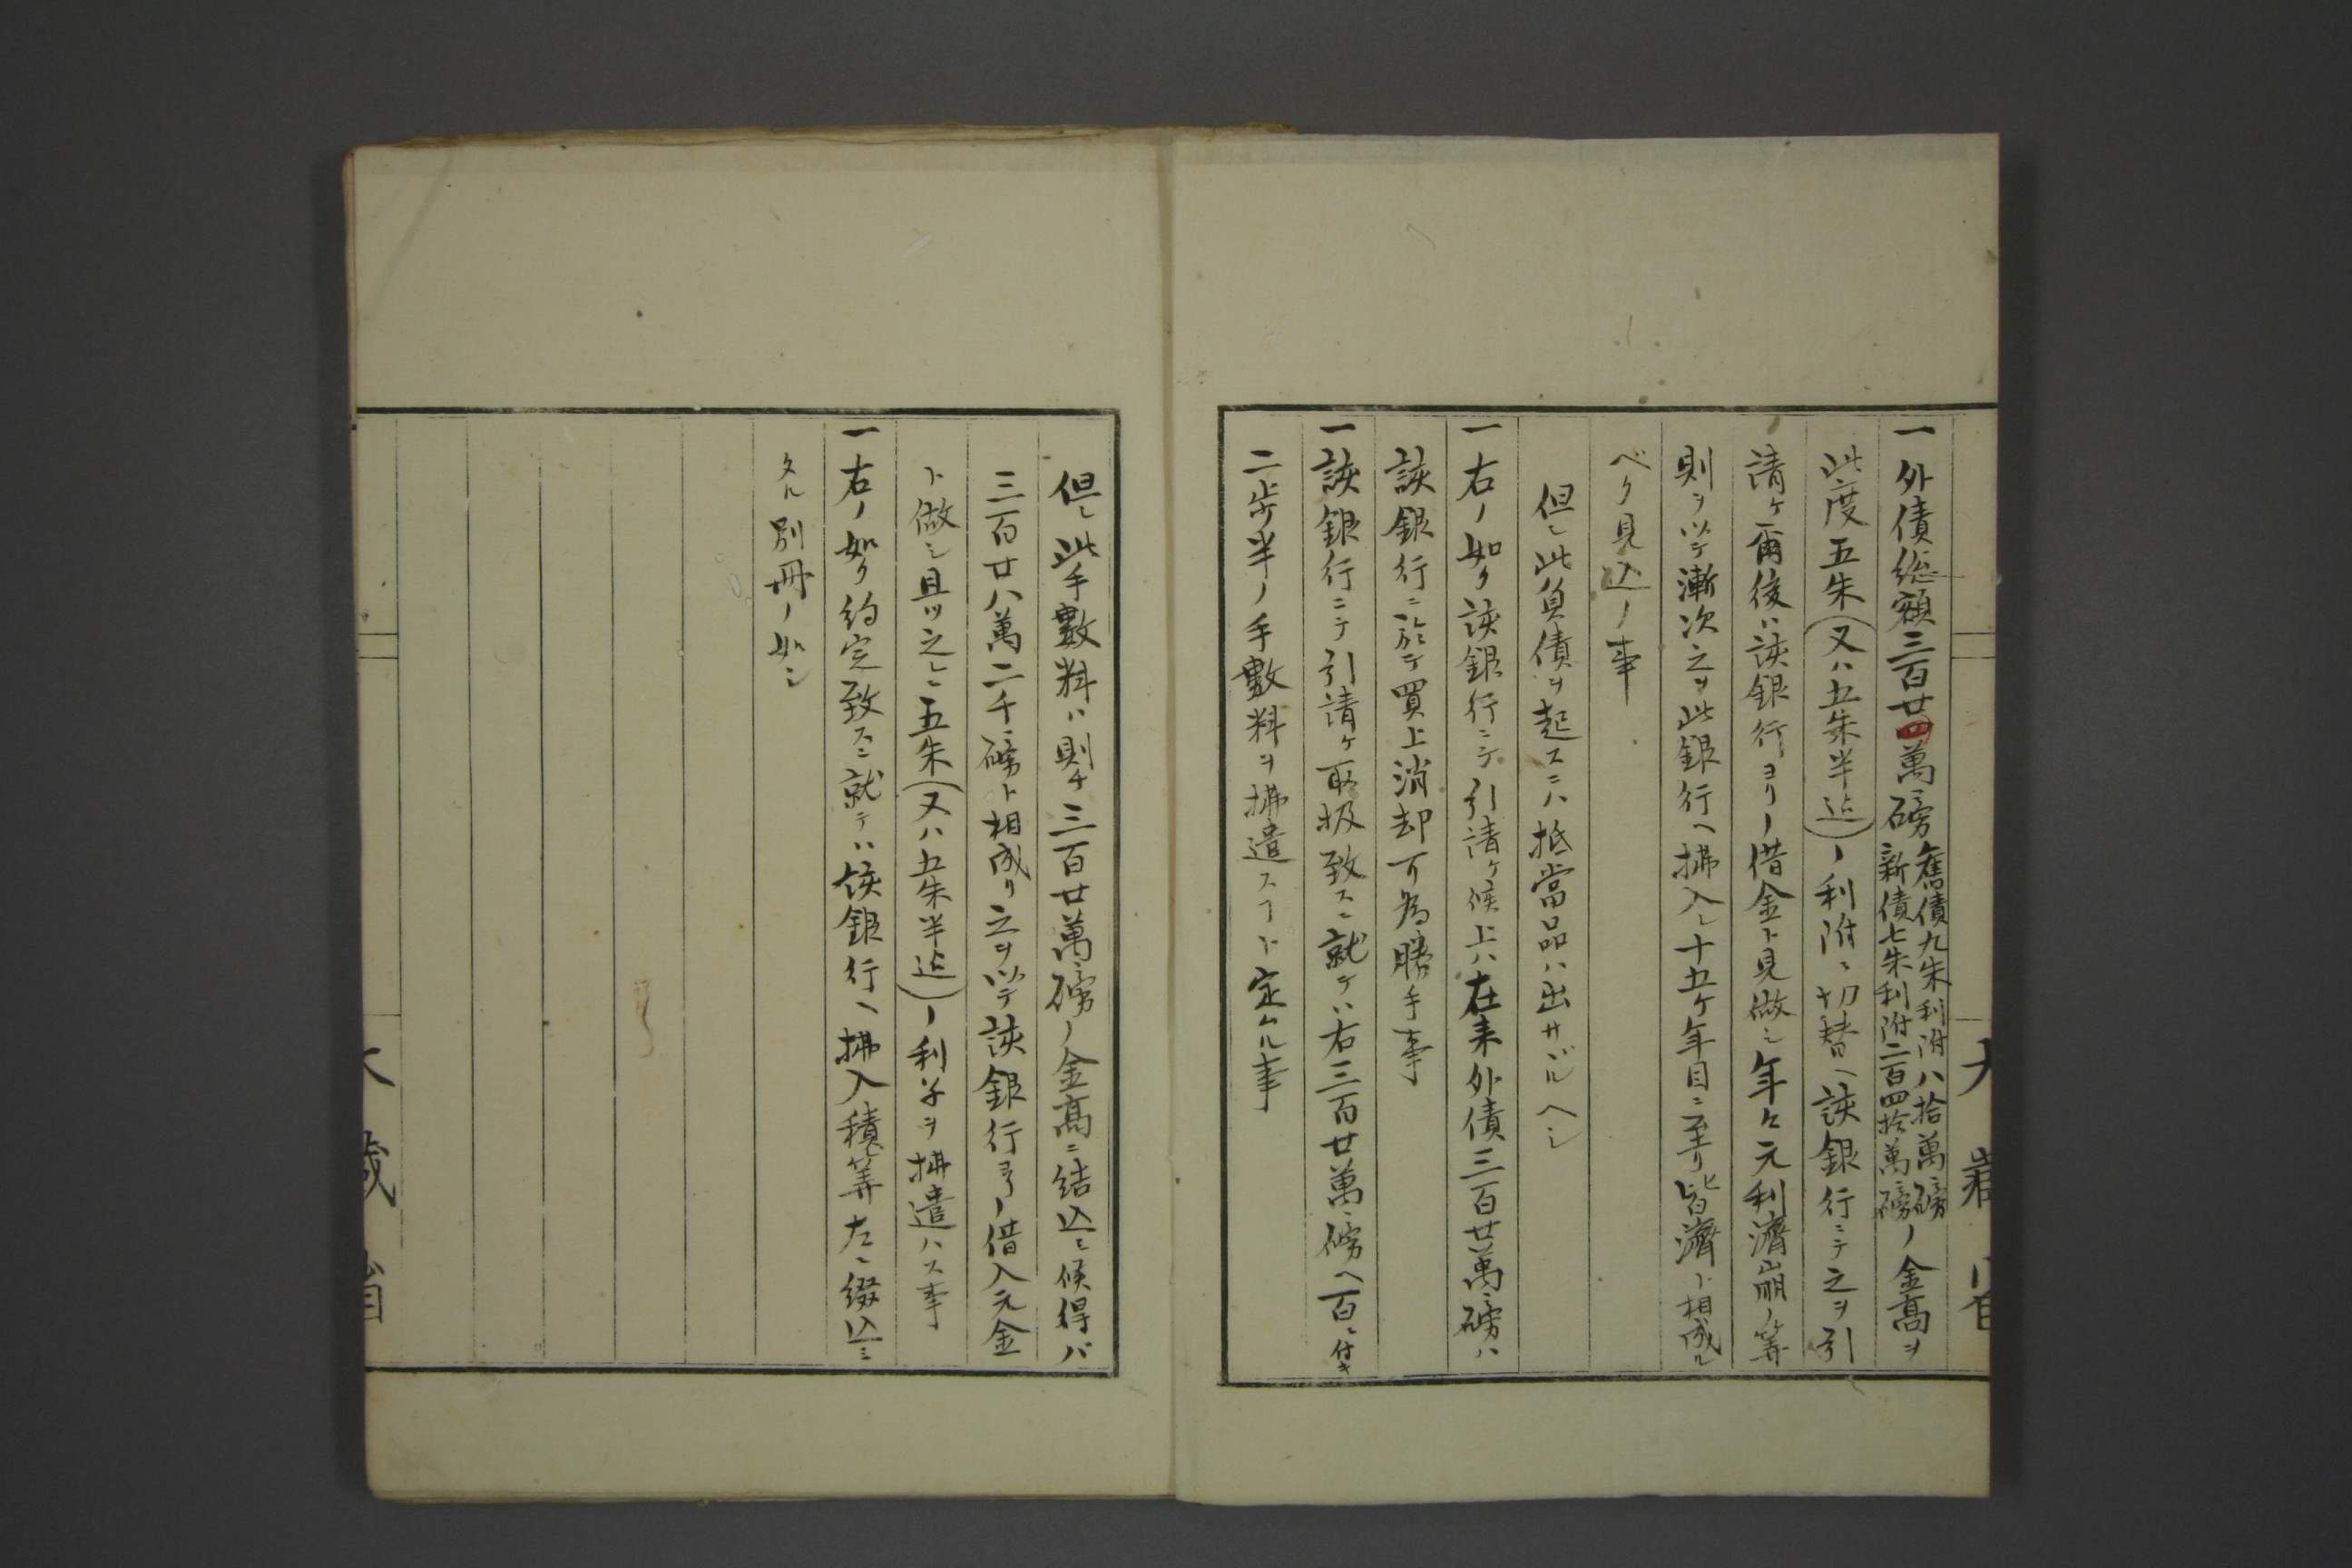 一外債総額三百廿四萬磅舊債九朱利附八拾萬磅新債七朱利附二百四拾萬磅ノ金高ヲ
此度五朱(又ハ五朱半迄)ノ利附ニ切替ヘ該銀行ニテ之ヲ引
請ケ爾後ハ該銀行ヨリノ借金ト見做シ年々元利済崩ノ筭
則ヲ以テ漸次之ヲ此銀行ヘ拂入レ十五ケ年目ニ至リ皆濟ト相成ル
ベク見込ノ事
但シ此負債ヲ起スニハ抵當品ハ出サヾルヘシ
一右ノ如ク該銀行ニテ引請ケ候上ハ在来外債三百廿萬磅ハ
該銀行ニ於テ買上消却可為勝手事
一該銀行ニテ引請ケ取扱致スニ就テハ右三百廿萬磅ヘ百ニ付キ
二歩半ノ手數料ヲ拂遣スヿト定ムル事
大藏省
但シ此手數料ハ則チ三百廿萬磅ノ金高ニ結込ミ候得バ
三百廿八萬二千磅ト相成リ之ヲ以テ該銀行ヨリノ借入元金
ト做シ且ツ之レニ五朱(又ハ五朱半迄)ノ利子ヲ拂遣ハス事
一右ノ如ク約定致スニ就テハ該銀行ヘ拂入積筭左ニ綴込ミ
タル別冊ノ如シ
大藏省